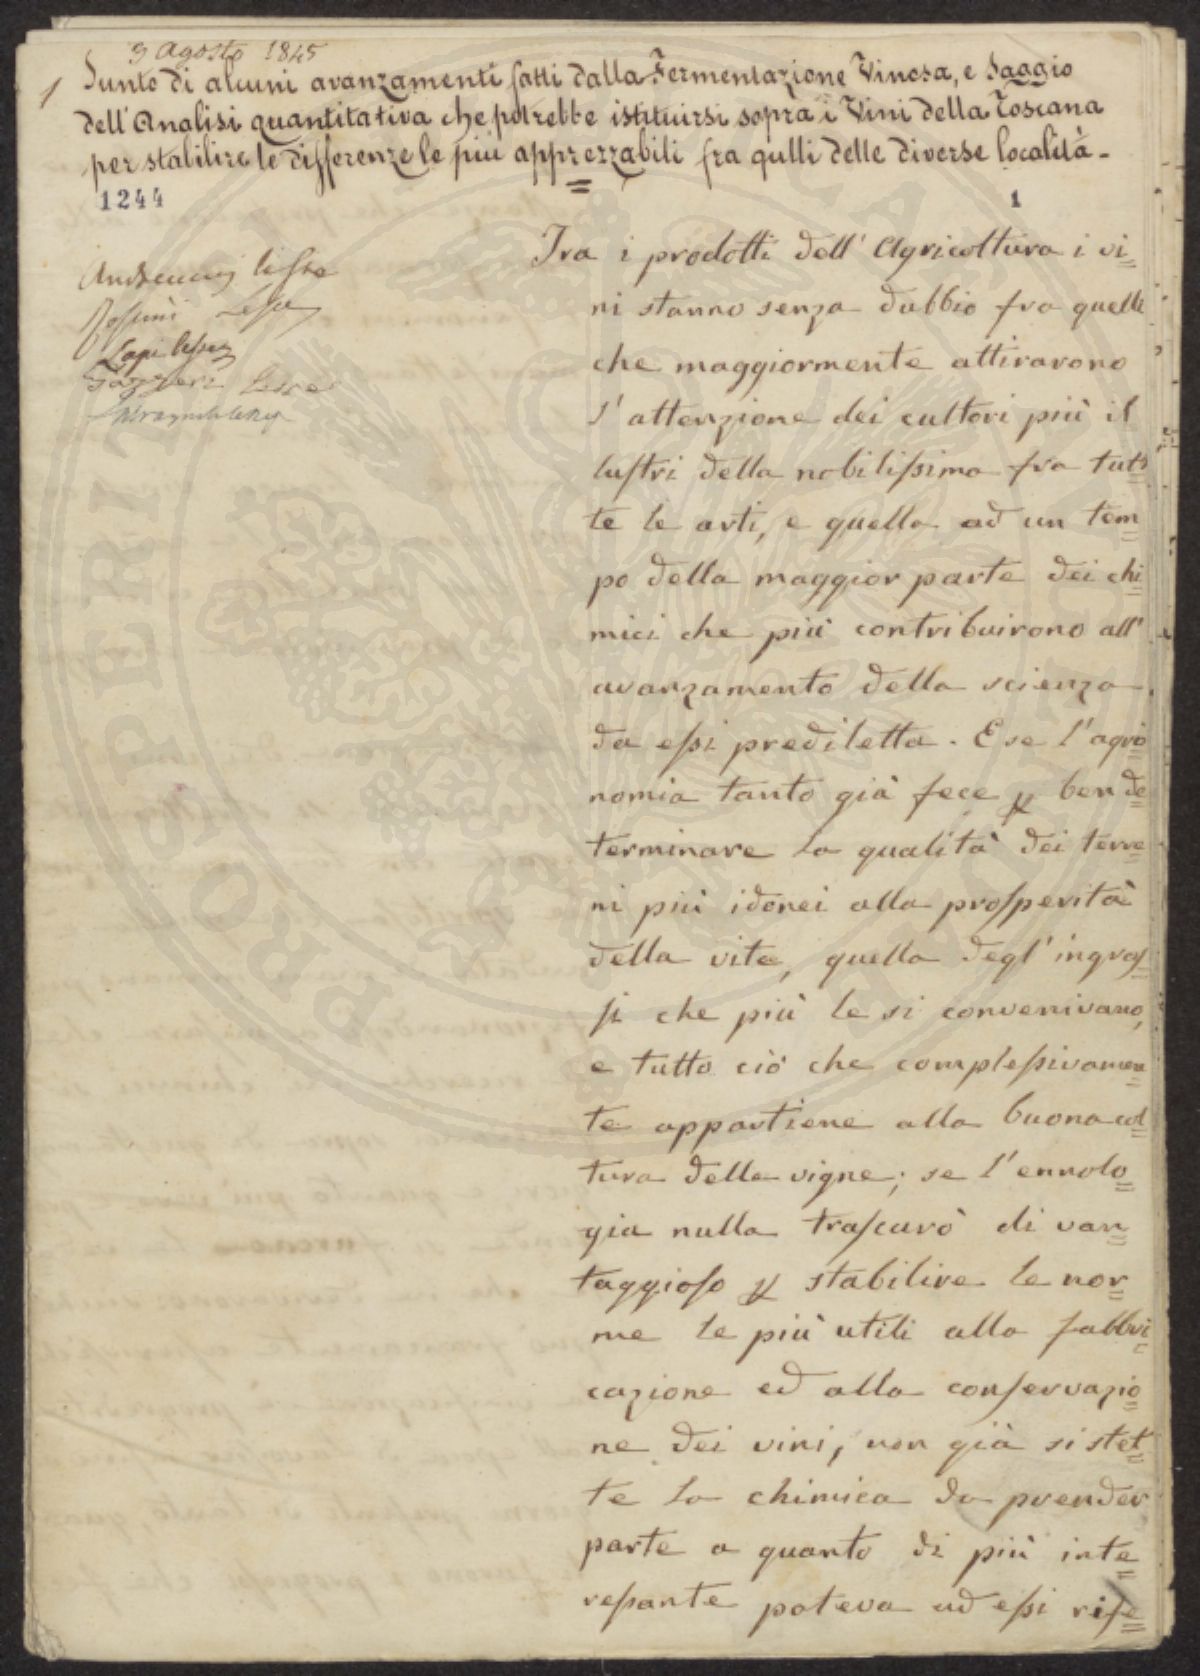 3 Agosto 1845
1
Sunto di alcuni avanzamenti fatti dalla Fermentazione Vinosa, e Saggio
dell'Analisi quantitativa che potrebbe istituirsi sopra i Vini della Toscana
per stabilire le differenze le più apprezzabili fra qulli delle diverse località -
1244
1
Andreucci lesse
Lapi lesse
Gazzeri lesse
Tra i prodotti dell' Agricoltura i vi=
ni stanno senza dubbio fra quelli
che maggiormente attirarono
l' attenzione dei cultori più il
lustri della nobilissima fra tut=
te le arti, e quella ad un tem=
po della maggior parte dei chi=
mici che più contribuirono all'
avanzamento della scienza
da essi prediletta. E se l'agro=
nomia tanto già fece p ben de=
terminare la qualità dei terre=
ni più idonei alla prosperità
della vite, quella degl' ingras=
si che più le si convenivano,
e tutto ciò che complessivamen=
te appartiene alla buona col=
tura delle vigne; se l'ennolo=
gia nulla trascurò di van=
taggioso p stabilire le nor=
me le più utili alla fabbri=
cazione ed alla conservazio=
ne dei vini, non già si stet=
te la chimica da prender
parte a quanto di più inte=
ressante poteva ad essi rife=
PROSPERITATI AUGENDAE